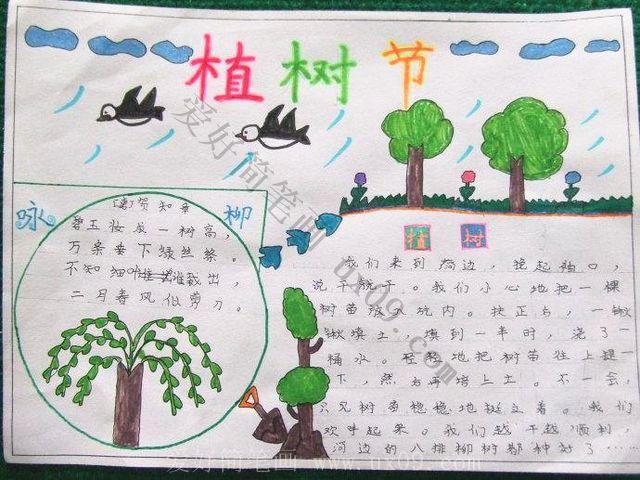 植树节
咏柳
(唐)贺知章
碧玉妆成一树高，
万条垂下绿丝绦。
不知细叶谁裁出，
二月春风似剪刀。
植树
我们来到河边，挽起袖口，
说干就干。我们小心地把一棵
树苗放入坑内。扶正与，一锹
锹填土，填到一半时，浇了一
桶水。轻轻地把树苗往上提一
下，然后再培上土。不一会，
只见树苗稳稳地挺立着。我们
欢呼起来。我们越干越顺利，
河边的八排柳树都种好了……
爱好简笔画 ux09.com
爱好简笔画 www.ux09.com